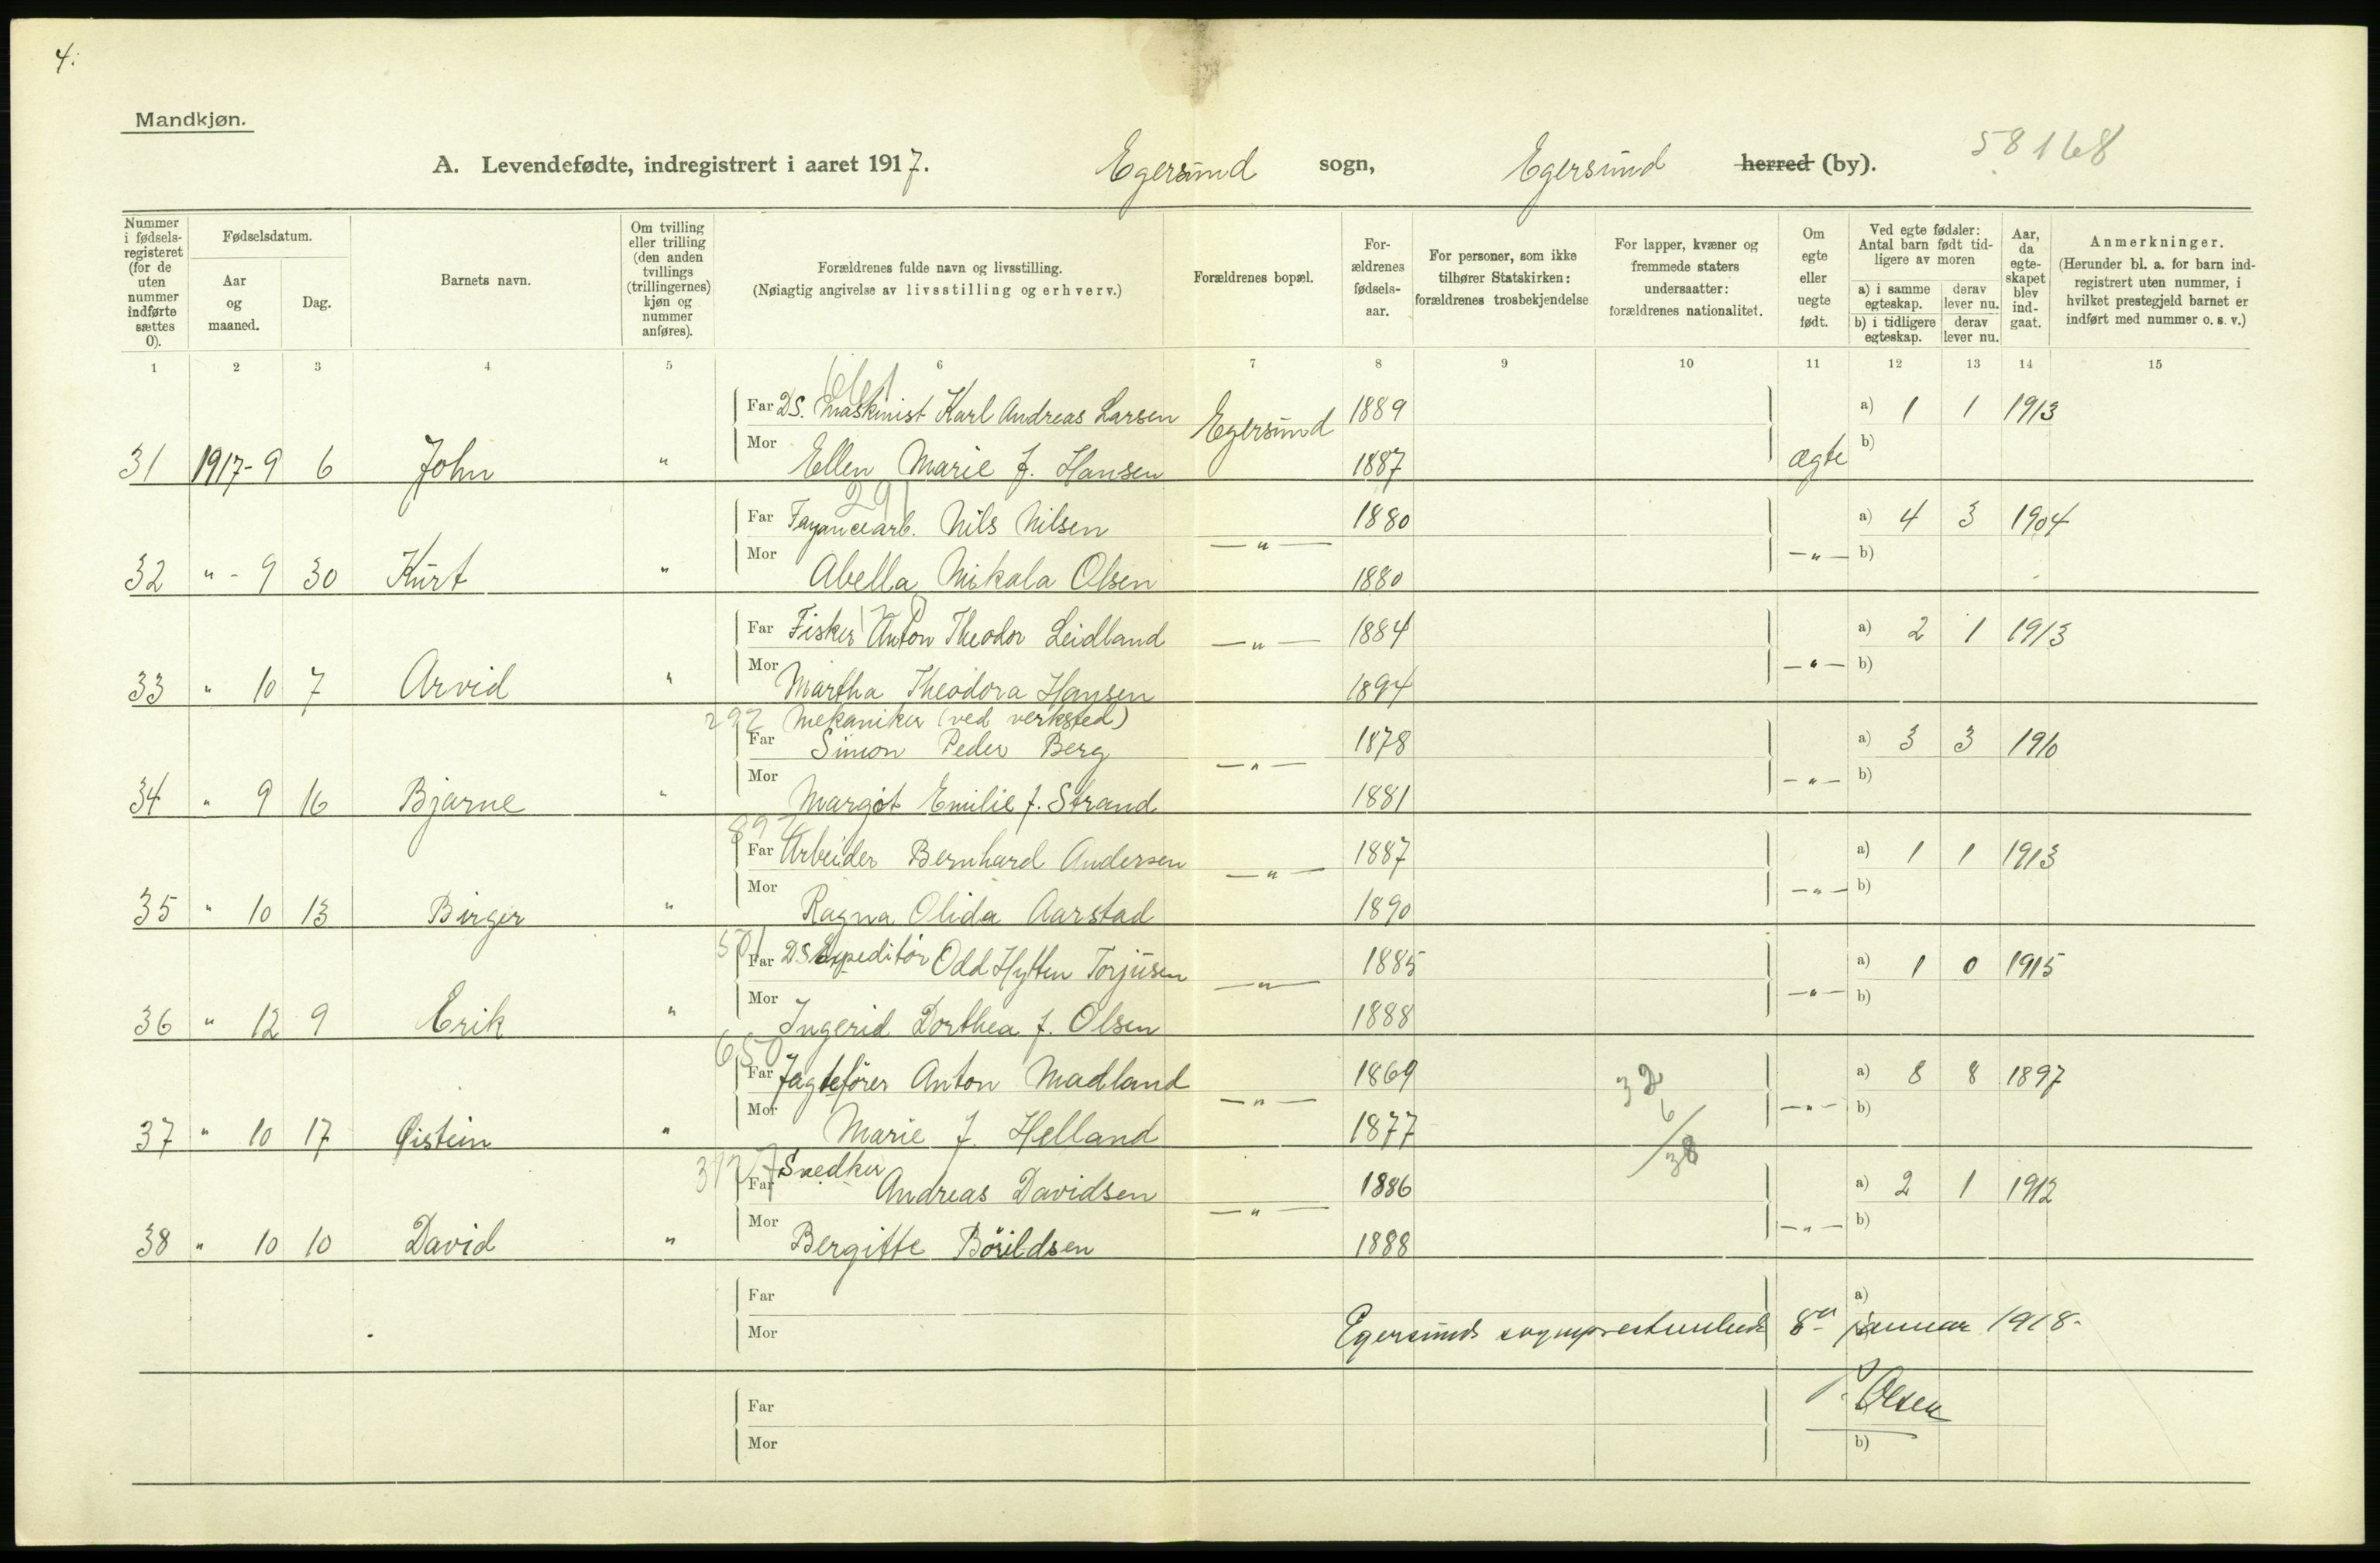 4.
Mandkjøn.
A. Levendefødte, indregistrert i aaret 1917. Egersund sogn, Egersund herred (by). 58168
Nummer i fødsels-registeret (for de uten nummer indførte sættes 0).
Fødselsdatum.
Aar og maaned.
Dag.
Barnets navn.
Om tvilling eller trilling (den anden tvillings (trillingernes) kjøn og nummer anføres).
Forældrenes fulde navn og livsstilling.
(Nøiagtig angivelse av livsstilling og erhverv.)
Forældrenes bopæl.
For-ældrenes fødsels-aar.
For personer, som ikke tilhører Statskirken: forældrenes trosbekjendelse
For lapper, kvæner og fremmede staters undersaatter: forældrenes nationalitet.
Om egte eller uegte født.
Ved egte fødsler: Antal barn født tid-ligere av moren
a) i samme egteskap.
derav lever nu.
b) i tidligere egteskap.
derav lever nu.
Aar, da egte-skapet blev ind-gaat.
Anmerkninger.
(Herunder bl. a. for barn ind-registrert uten nummer, i hvilket prestegjeld barnet er indført med nummer o. s. v.)
1 2 3 4 5 6 7 8 9 10 11 12 13 14 15
Far DS. Maskinist Karl Andreas Larsen Egersund 1889 a) 1 1 1913
31 1917-9 6 John " Mor Ellen Marie f. Hansen 1887 ægte b)
291
Far Fayancearb. Nils Nilsen —"— 1880 a) 4 3 1904
32 " - 9 30 Kurt " Mor Abella Nikala Olsen 1880 —"— b)
Far Fisker Anton Theodor Leidland —"— 1884 a) 2 1 1913
33 " 10 7 Arvid " Mor Martha Theodora Hansen 1894 —"— b)
292 Mekaniker (ved verksted)
Far Simon Peder Berg —"— 1878 a) 3 3 1910
34 " 9 16 Bjarne " Mor Margot Emilie f. Strand 1881 —"— b)
Far Arbeider Bernhard Andersen —"— 1887 a) 1 1 1913
35 " 10 13 Birger " Mor Ragna Olida Aarstad 1890 —"— b)
501
Far DSExpeditør Odd Hytten Torjusen —"— 1885 a) 1 0 1915
36 " 12 9 Erik " Mor Ingerid Dorthea f. Olsen 1888 —"— b)
650
Far Jagtefører Anton Madland —"— 1869 32 a) 8 8 1897
37 " 10 17 Øistein " Mor Marie f. Helland 1877 6/38 —"— b)
Snedker
Far Andreas Davidsen —"— 1886 a) 2 1 1912
38 " 10 10 David " Mor Bergitte Børildsen 1888 —"— b)
Far a)
Mor Egersunds 8de januar 1918.
Far Olsen
Mor b)